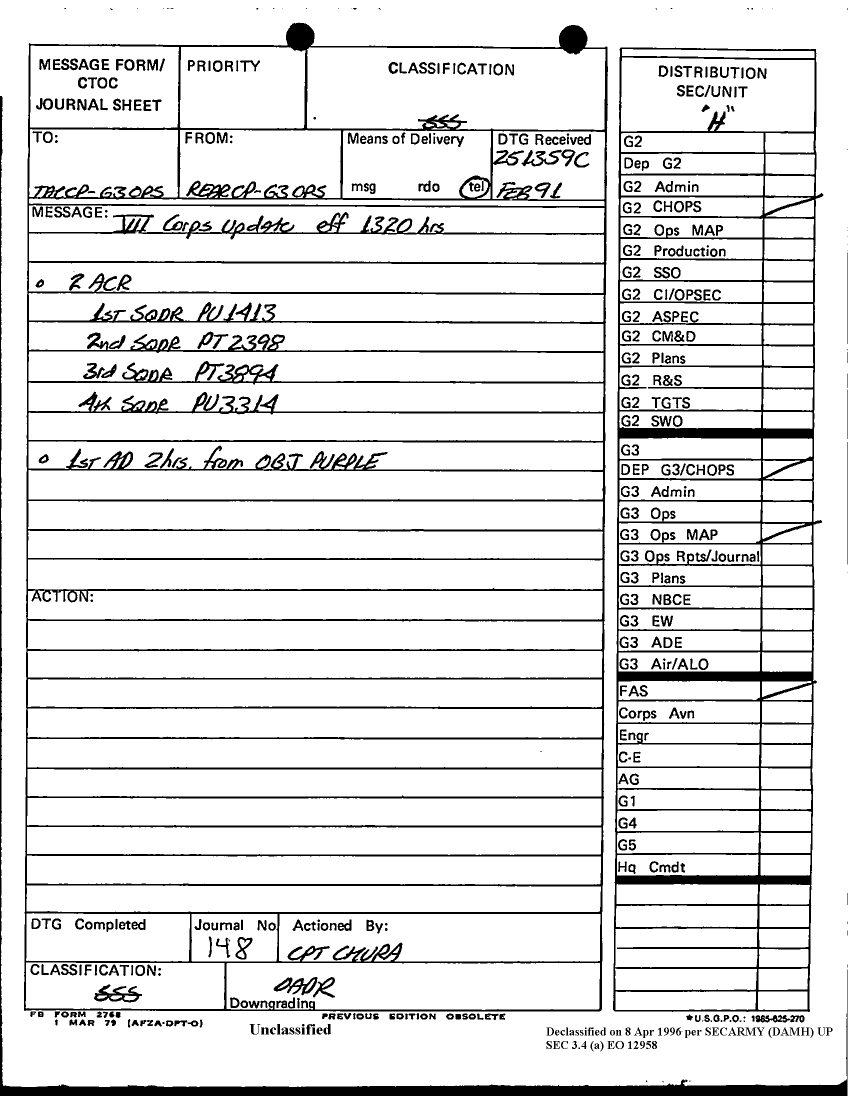 MESSAGE FORM/
CTOC
JOURNAL SHEET
PRIORITY
CLASSIFICATION
SSS
TO:
TACCP-G3 OPS
FROM:
REARCP-G3 OPS
Means of Delivery
msg rdo tel
DTG Received
251359C
FEB 91
MESSAGE: VII Corps Update eff 1320 hrs
o 2 ACR
1st SQDR PU1413
2nd SQDR PT2398
3rd SQDR PT3894
4th SQDR PU3314
o 1st AD 2hrs. from OBJ PURPLE
ACTION:
DTG Completed
Journal No
148
Actioned By:
CPT CHURA
CLASSIFICATION:
SSS
OADR
Downgrading
FB FORM 2768
1 MAR 79 (AFZA-DPT-O)
PREVIOUS EDITION OBSOLETE
Unclassified
DISTRIBUTION
SEC/UNIT
"H"
G2
Dep G2
G2 Admin
G2 CHOPS
G2 Ops MAP
G2 Production
G2 SSO
G2 CI/OPSEC
G2 ASPEC
G2 CM&D
G2 Plans
G2 R&S
G2 TGTS
G2 SWO
G3
DEP G3/CHOPS
G3 Admin
G3 Ops
G3 Ops MAP
G3 Ops Rpts/Journal
G3 Plans
G3 NBCE
G3 EW
G3 ADE
G3 Air/ALO
FAS
Corps Avn
Engr
C-E
AG
G1
G4
G5
Hq Cmdt
★U.S.G.P.O.: 1985-625-270
Declassified on 8 Apr 1996 per SECARMY (DAMH) UP
SEC 3.4 (a) EO 12958